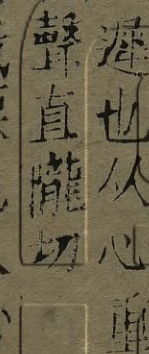 遲也从心重
聲直隴切